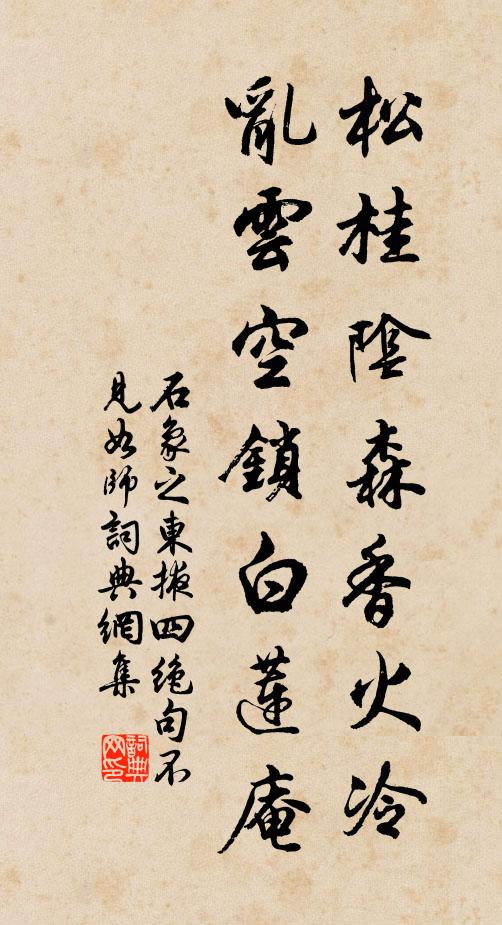 松桂陰森香火冷
亂雲空鎖白蓮庵
石象之東掖四絶句不
見如師詞典網集
詞典
网印